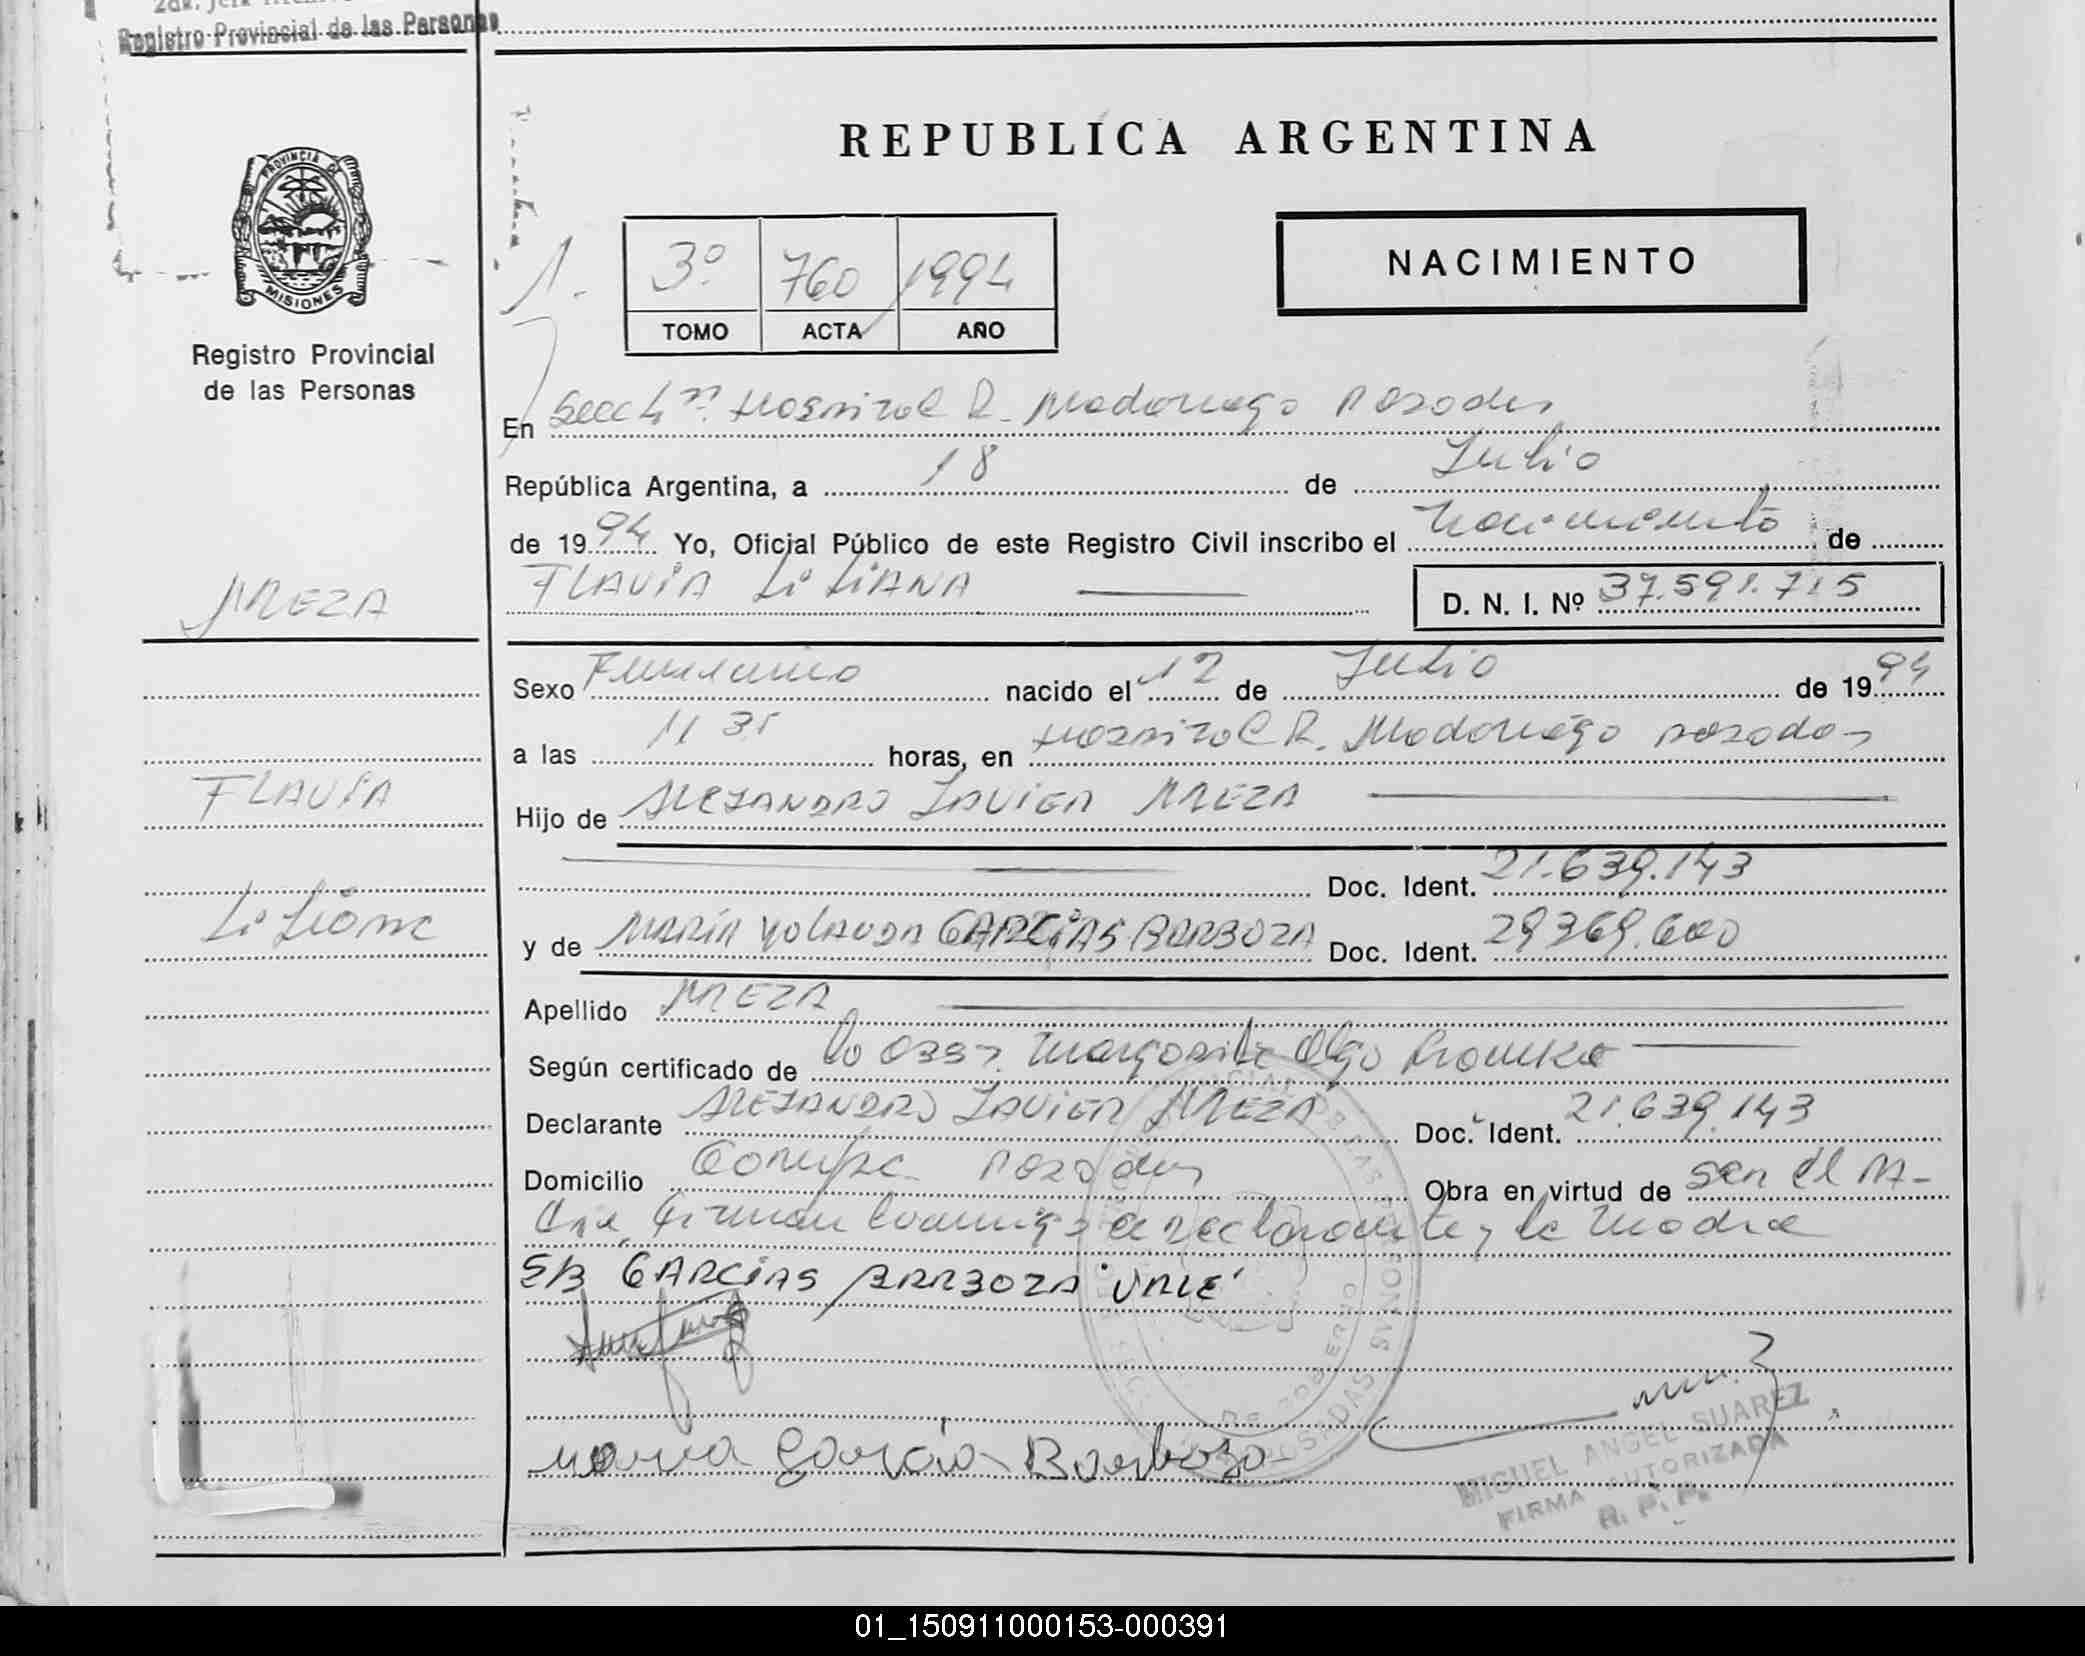 Registro Provincial de las Personas
REPUBLICA ARGENTINA
PROVINCIA DE
MISIONES
Registro Provincial
de las Personas
1.
3º 760 1994
TOMO ACTA AÑO
NACIMIENTO
En Secc 4ª. Hospital R. Madariaga Posadas
República Argentina, a 18 de Julio
de 1994 Yo, Oficial Público de este Registro Civil inscribo el Nacimiento de
MEZA
FLAVIA LiLiANA D. N. I. Nº 37.591.715
Sexo Femenino nacido el 12 de Julio de 1994
a las 11 35 horas, en Hospital R. Madariaga Posadas
FLAVIA
Hijo de ALEJANDRO JAVIER MEZA
Doc. Ident. 21.639.143
Liliana
y de MARÍA YOLANDA GARCÍAS BARBOZA Doc. Ident. 29369.600
Apellido MEZA
Según certificado de la Obst. Margarita Olga
Declarante ALEJANDRO JAVIER MEZA Doc. Ident. 21.639.143
Domicilio Garupa Posadas Obra en virtud de ser el PA-
dre, firman conmigo el declarante y la Madre
S/B GARCÍAS BARBOZA "VALE"
Maria Garcia Barboza
MIGUEL ANGEL SUAREZ
FIRMA AUTORIZADA
R. P. P.
01_150911000153-000391